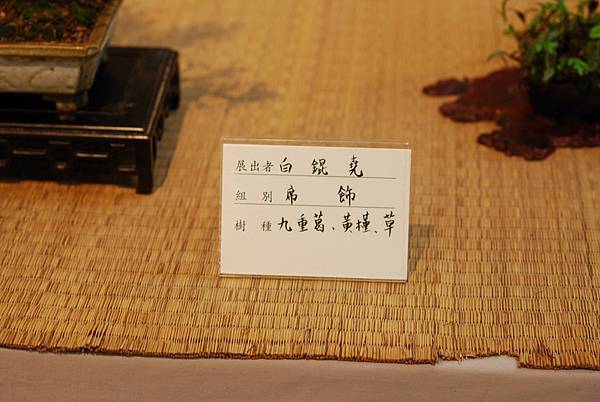 展出者 白錕堯
組別 席飾
樹種 九重葛、黃槿、草